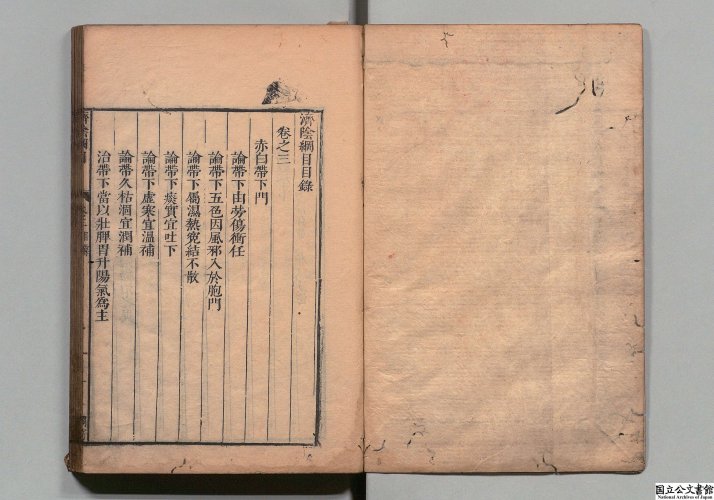 濟陰綱目目錄
卷之三
赤白帶下門
論帶下由勞傷衝任
論帶下五色因風邪入於胞門
論帶下屬濕熱寃結不散
論帶下痰實宜吐下
論帶下虛寒宜溫補
論帶久枯涸宜潤補
治帶下當以壯脾胃升陽氣爲主
国立公文書館
National Archives of Japan